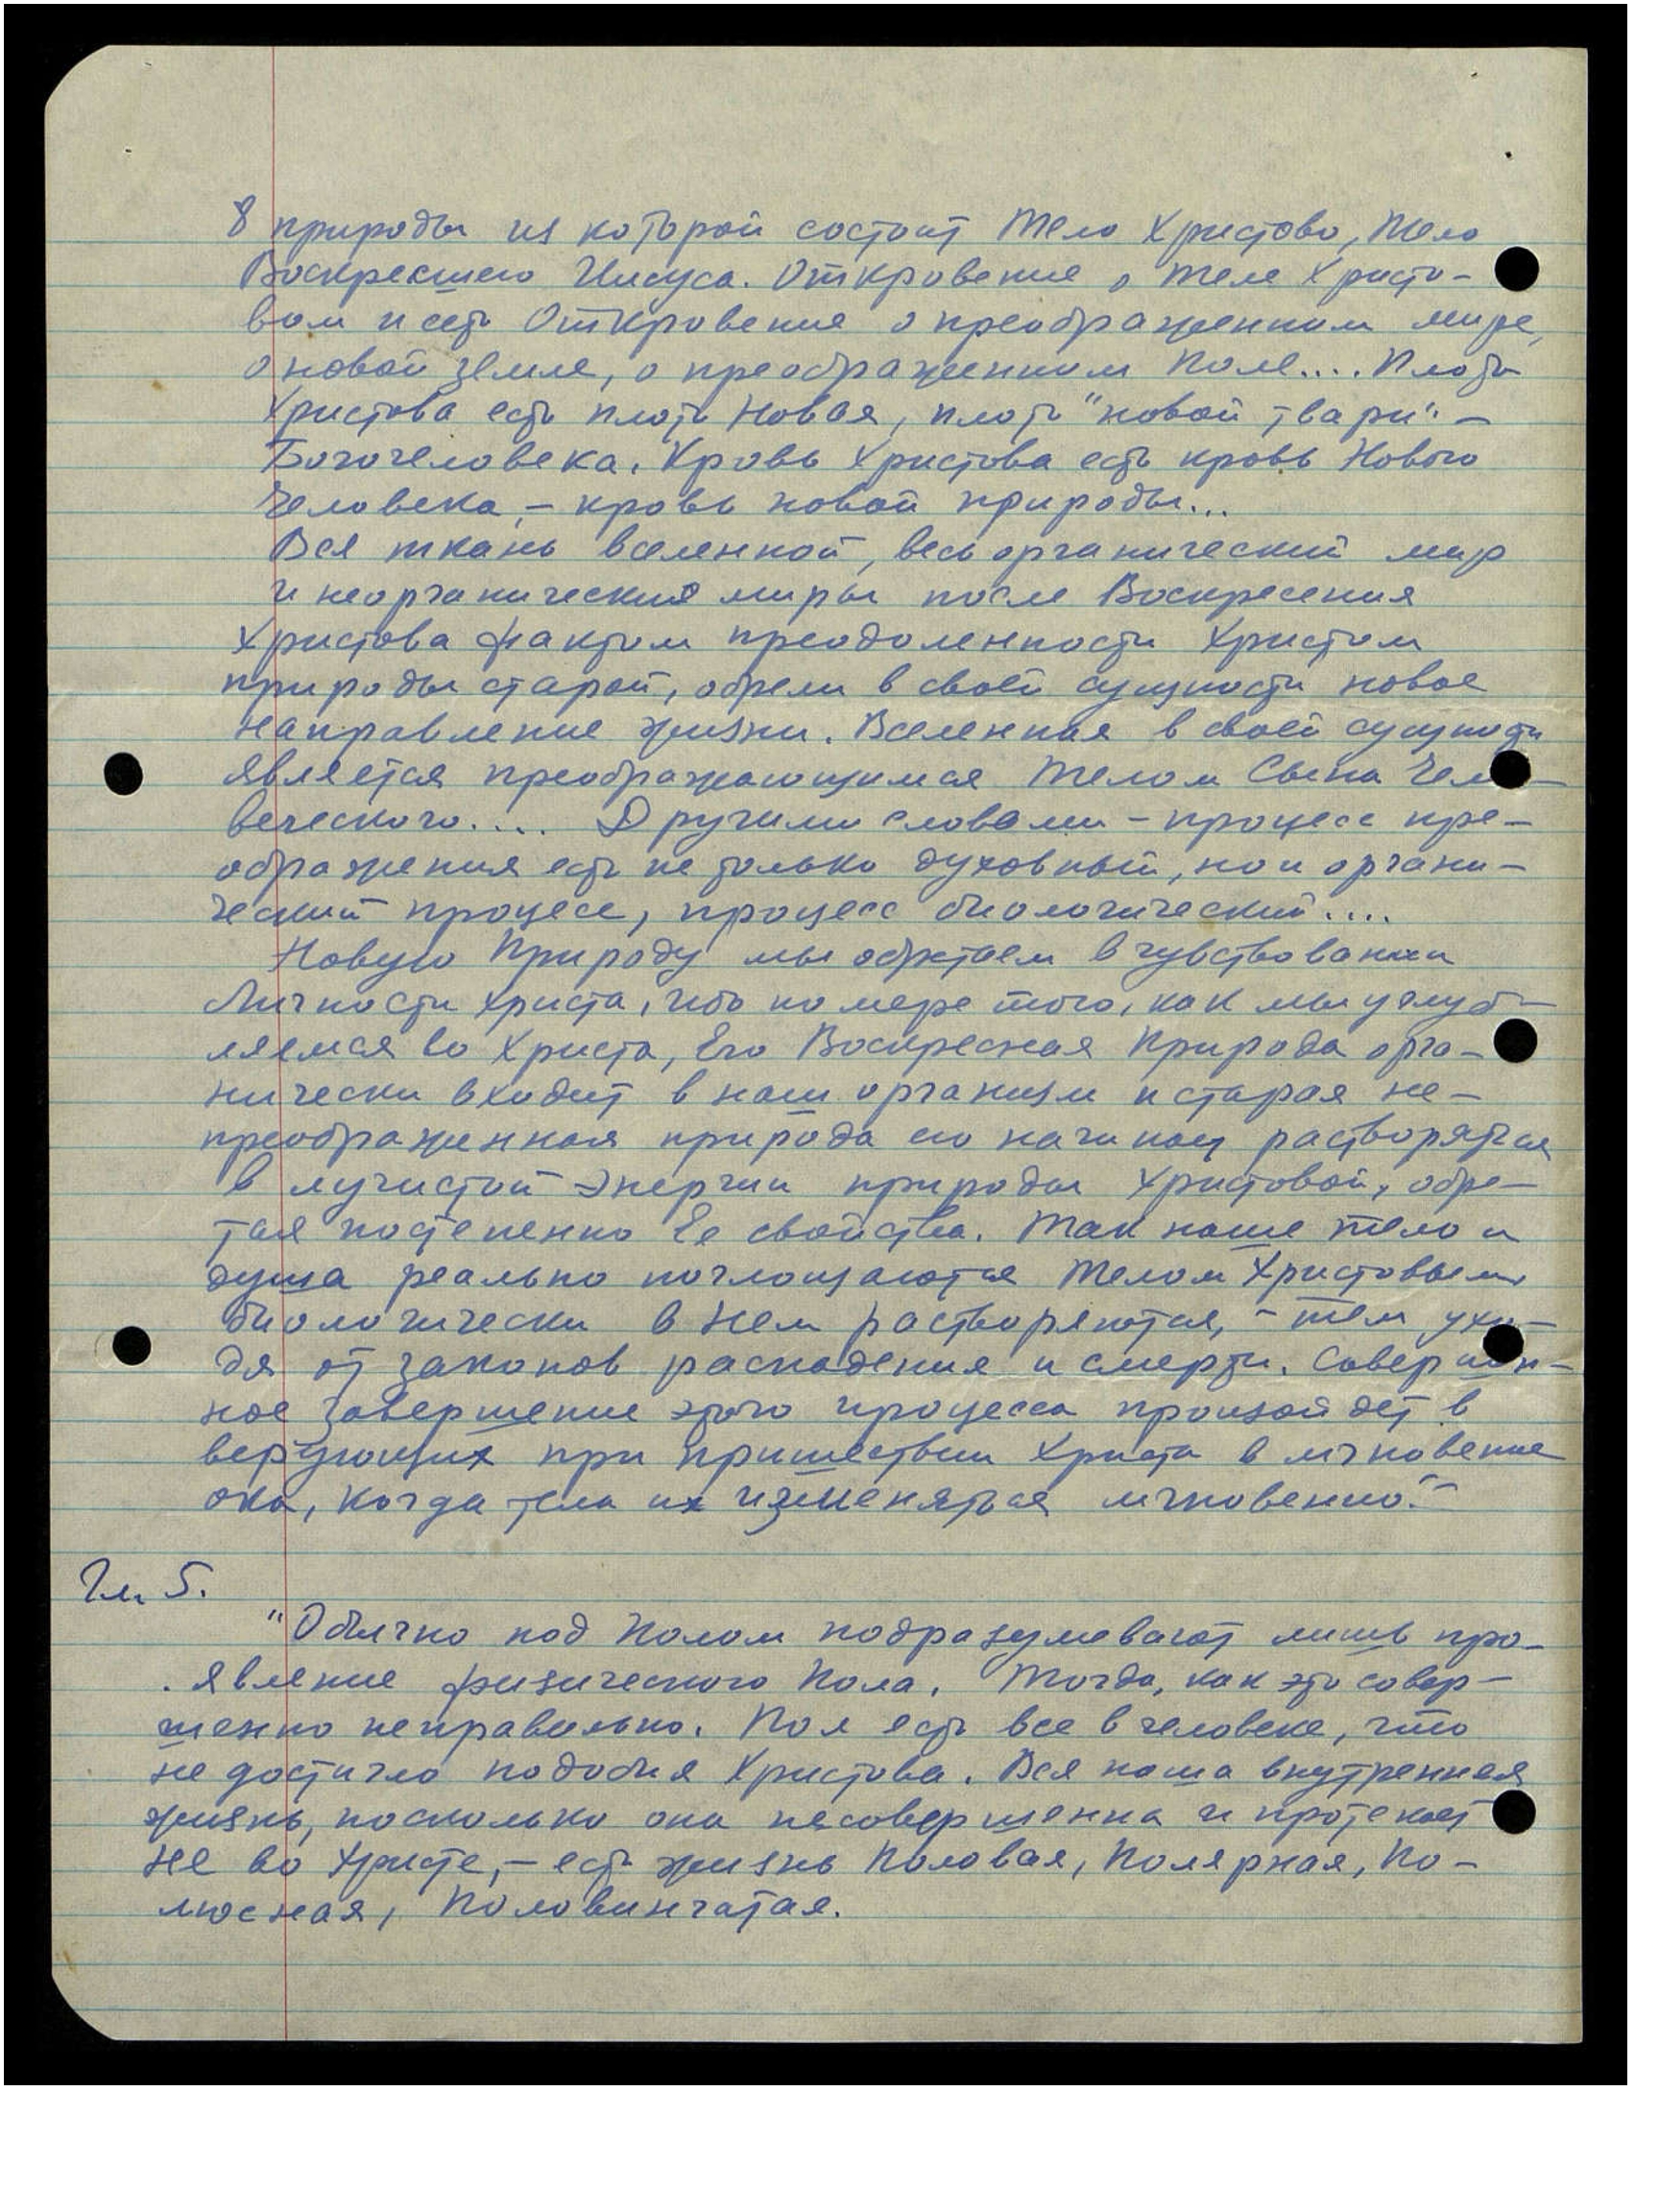 8 природы из которой состоит Тело Христово, Тело
Воскресшего Иисуса. Откровение о Теле Христо-
вом и есть Откровение о преображенном мире,
о новой земле, о преображенном Поле.... Плоть
Христова есть плоть Новая, плоть "новой твари" —
Богочеловека. Кровь Христова есть кровь Нового
Человека, — кровь новой природы...
Вся ткань вселенной, весь органический мир
и неорганический миры после Воскресения
Христова фактом преодоленности Христом
природы старой, обрели в своей сущности новое
направление жизни. Вселенная в своей сущности
является преображающимся Телом Сына Чело-
веческого.... Другими словами - процесс пре-
ображения есть не только духовный, но и органи-
ческий процесс, процесс биологический....
Новую Природу мы обретаем в чувствовании
Личности Христа, ибо по мере того, как мы углуб-
ляемся во Христа, Его Воскресная Природа орга-
нически входит в наш организм и старая не-
преображенная природа его начинает растворяться
в лучистой энергии природы Христовой, обре-
тая постепенно Ее свойства. Так наше тело и
душа реально поглощаются Телом Христовым,
биологически в Нем растворяются, - тем ухо-
дя от законов распадения и смерти. Совершен-
ное завершение этого процесса произойдет в
верующих при пришествии Христа в мгновение
ока, когда тела их изменятся мгновенно."
Гл. 5.
"Обычно под Полом подразумевают лишь про-
явление физического Пола. Тогда, как это совер-
шенно неправильно. Пол есть все в человеке, что
не достигло подобия Христова. Вся наша внутренняя
жизнь, поскольку она несовершенна и протекает
не во Христе, — есть жизнь Половая, Полярная, По-
люсная, Половинчатая.